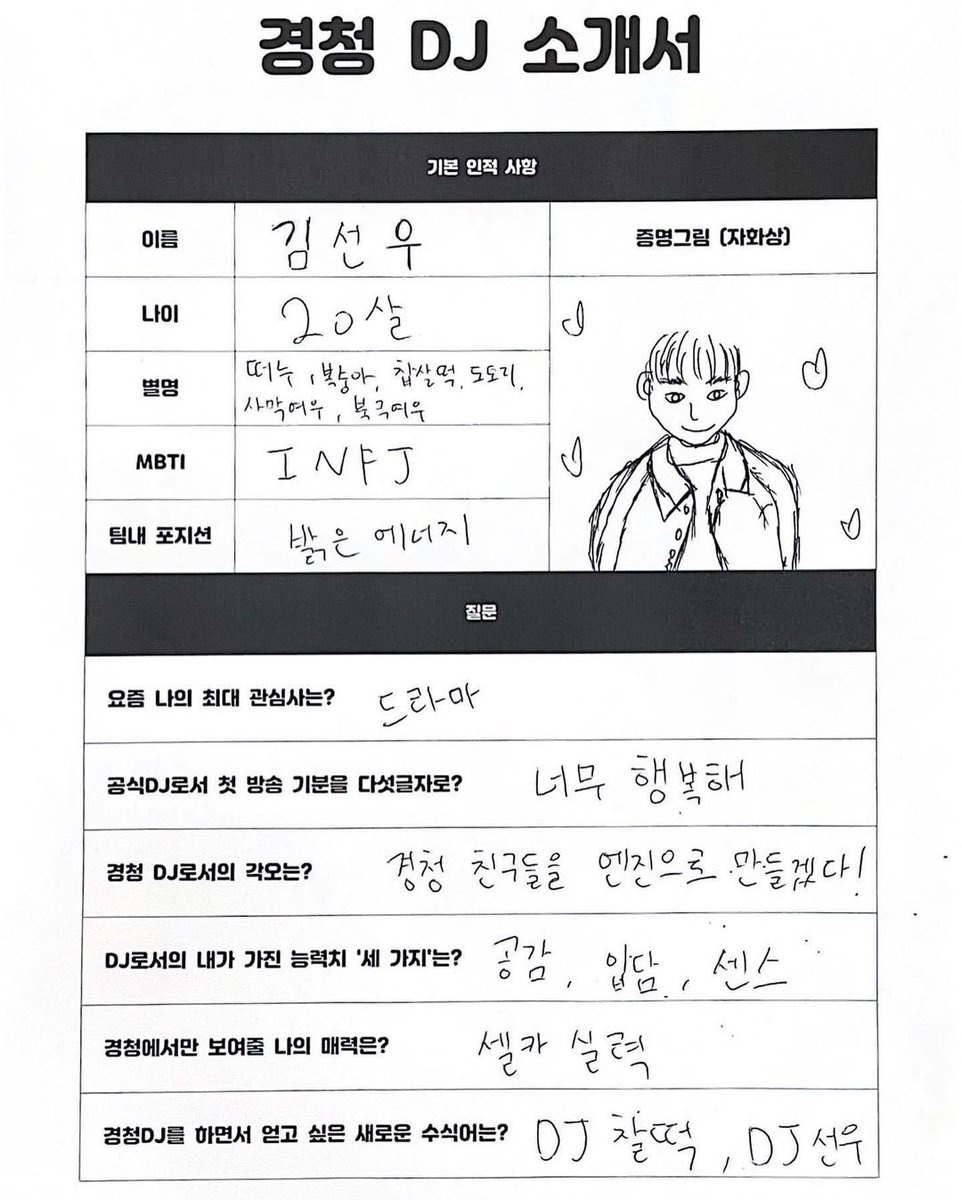 경청 DJ 소개서
기본 인적 사항
이름 김선우
증명그림 (자화상)
나이 20살
별명 떠누, 복숭아, 찹살떡, 도토리,
사막여우, 북극여우
MBTI INFJ
팀내 포지션 밝은 에너지
질문
요즘 나의 최대 관심사는? 드라마
공식DJ로서 첫 방송 기분을 다섯글자로? 너무 행복해
경청 DJ로서의 각오는? 경청 친구들을 엔진으로 만들겠다!
DJ로서의 내가 가진 능력치 '세 가지'는? 공감, 입담, 센스
경청에서만 보여줄 나의 매력은? 셀카 실력
경청DJ를 하면서 얻고 싶은 새로운 수식어는? DJ 찰떡, DJ 선우